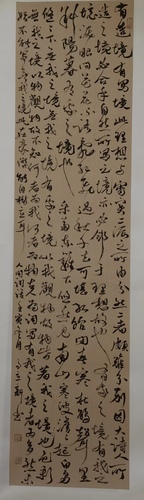 有造境有写境此理想与写实二派之所由分然二者颇难分别因大诗人所
造之境必合乎自然所写之境亦必邻于理想故也有有我之境有无我之
境泪眼问花花不语乱红飞过秋千去可堪孤馆闭春寒杜鹃声里
斜阳暮有我之境也采菊东篱下悠然见南山寒波澹澹起白鸟
悠悠下无我之境也有我之境以我观物故物皆著我之色彩
无我之境以物观物故不知何者为我何者为物古人为词写有我之境者为多然未
始不能写无我之境此在豪杰之士能自树立耳
人间词话